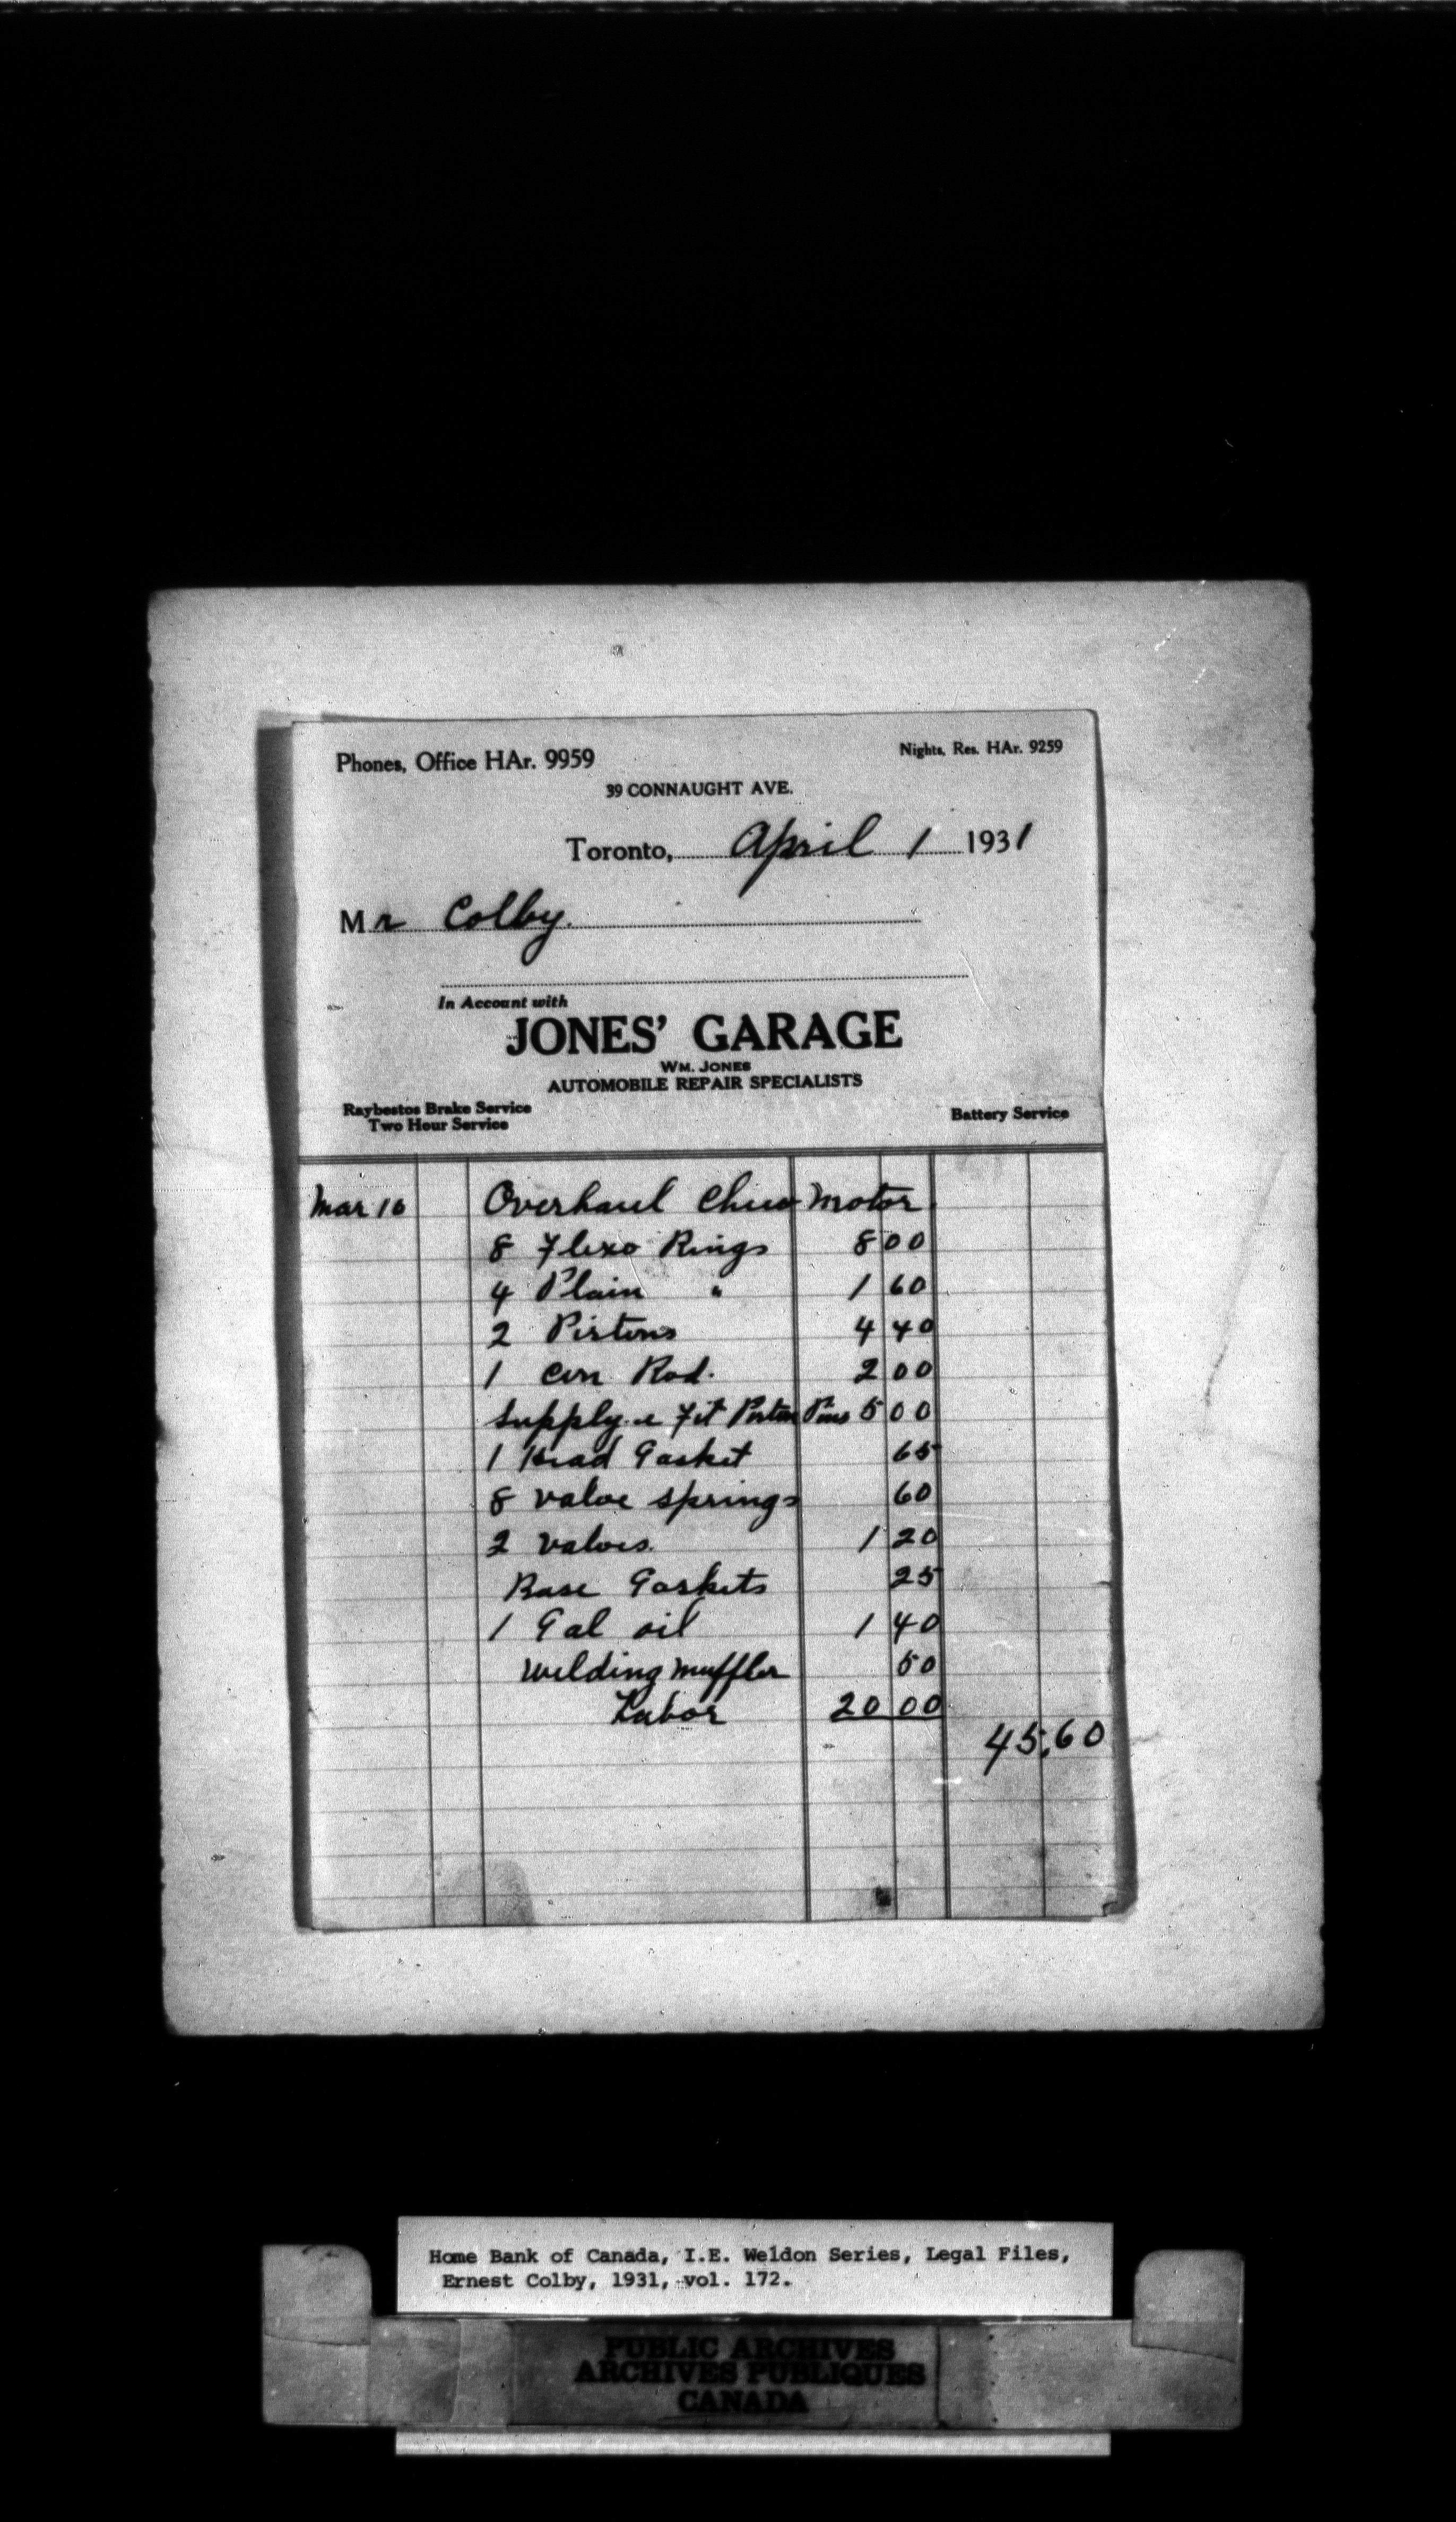 Phones, Office HAr. 9959 Nights, Res. HAr. 9259
39 CONNAUGHT AVE.
Toronto, April 1 1931
Mr Colby.
In Account with
JONES' GARAGE
WM. JONES
AUTOMOBILE REPAIR SPECIALISTS
Raybestos Brake Service
Two Hour Service
Battery Service
Mar 16 Overhaul Chev Motor
8 Flexo Rings 8 00
4 Plain " 1 60
2 Pistons 4 40
1 Con Rod. 2 00
Supply & Fit Piston Pins 5 00
1 Head Gasket 65
8 Valve springs 60
2 Valves. 1 20
Base Gaskets 25
1 Gal oil 1 40
Welding muffler 50
Labor 20 00
45.60
Home Bank of Canada, I.E. Weldon Series, Legal Files,
Ernest Colby, 1931, vol. 172.
PUBLIC ARCHIVES
ARCHIVES PUBLIQUES
CANADA